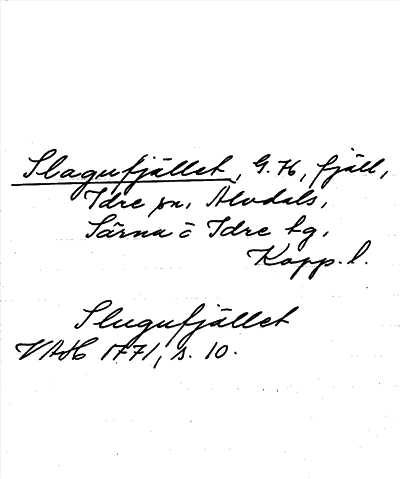 Slagufjället, G.H, fjäll,
Idre sn, Älvdals,
Särna ō Idre tg,
Kopp. l.
Slugufjället
VAH 1771, s. 10.